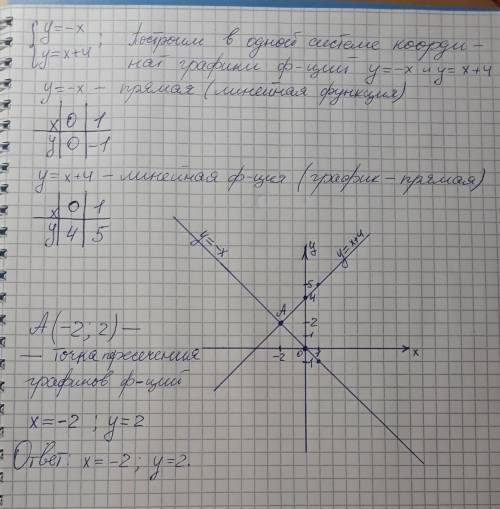 {y=-x
{y=x+4; Построим в одной системе коорди-
нат графики ф-ций y=-x и y=x+4
y=-x - прямая (линейная функция)
x | 0 | 1
y | 0 | -1
y=x+4 - линейная ф-ция (график - прямая)
x | 0 | 1
y | 4 | 5
y=-x
y
y=x+4
5
4
A
2
1
-2
0
1
x
-1
A(-2; 2) -
- Точка пресечения
графиков ф-ций
x=-2; y=2
Ответ: x=-2; y=2.